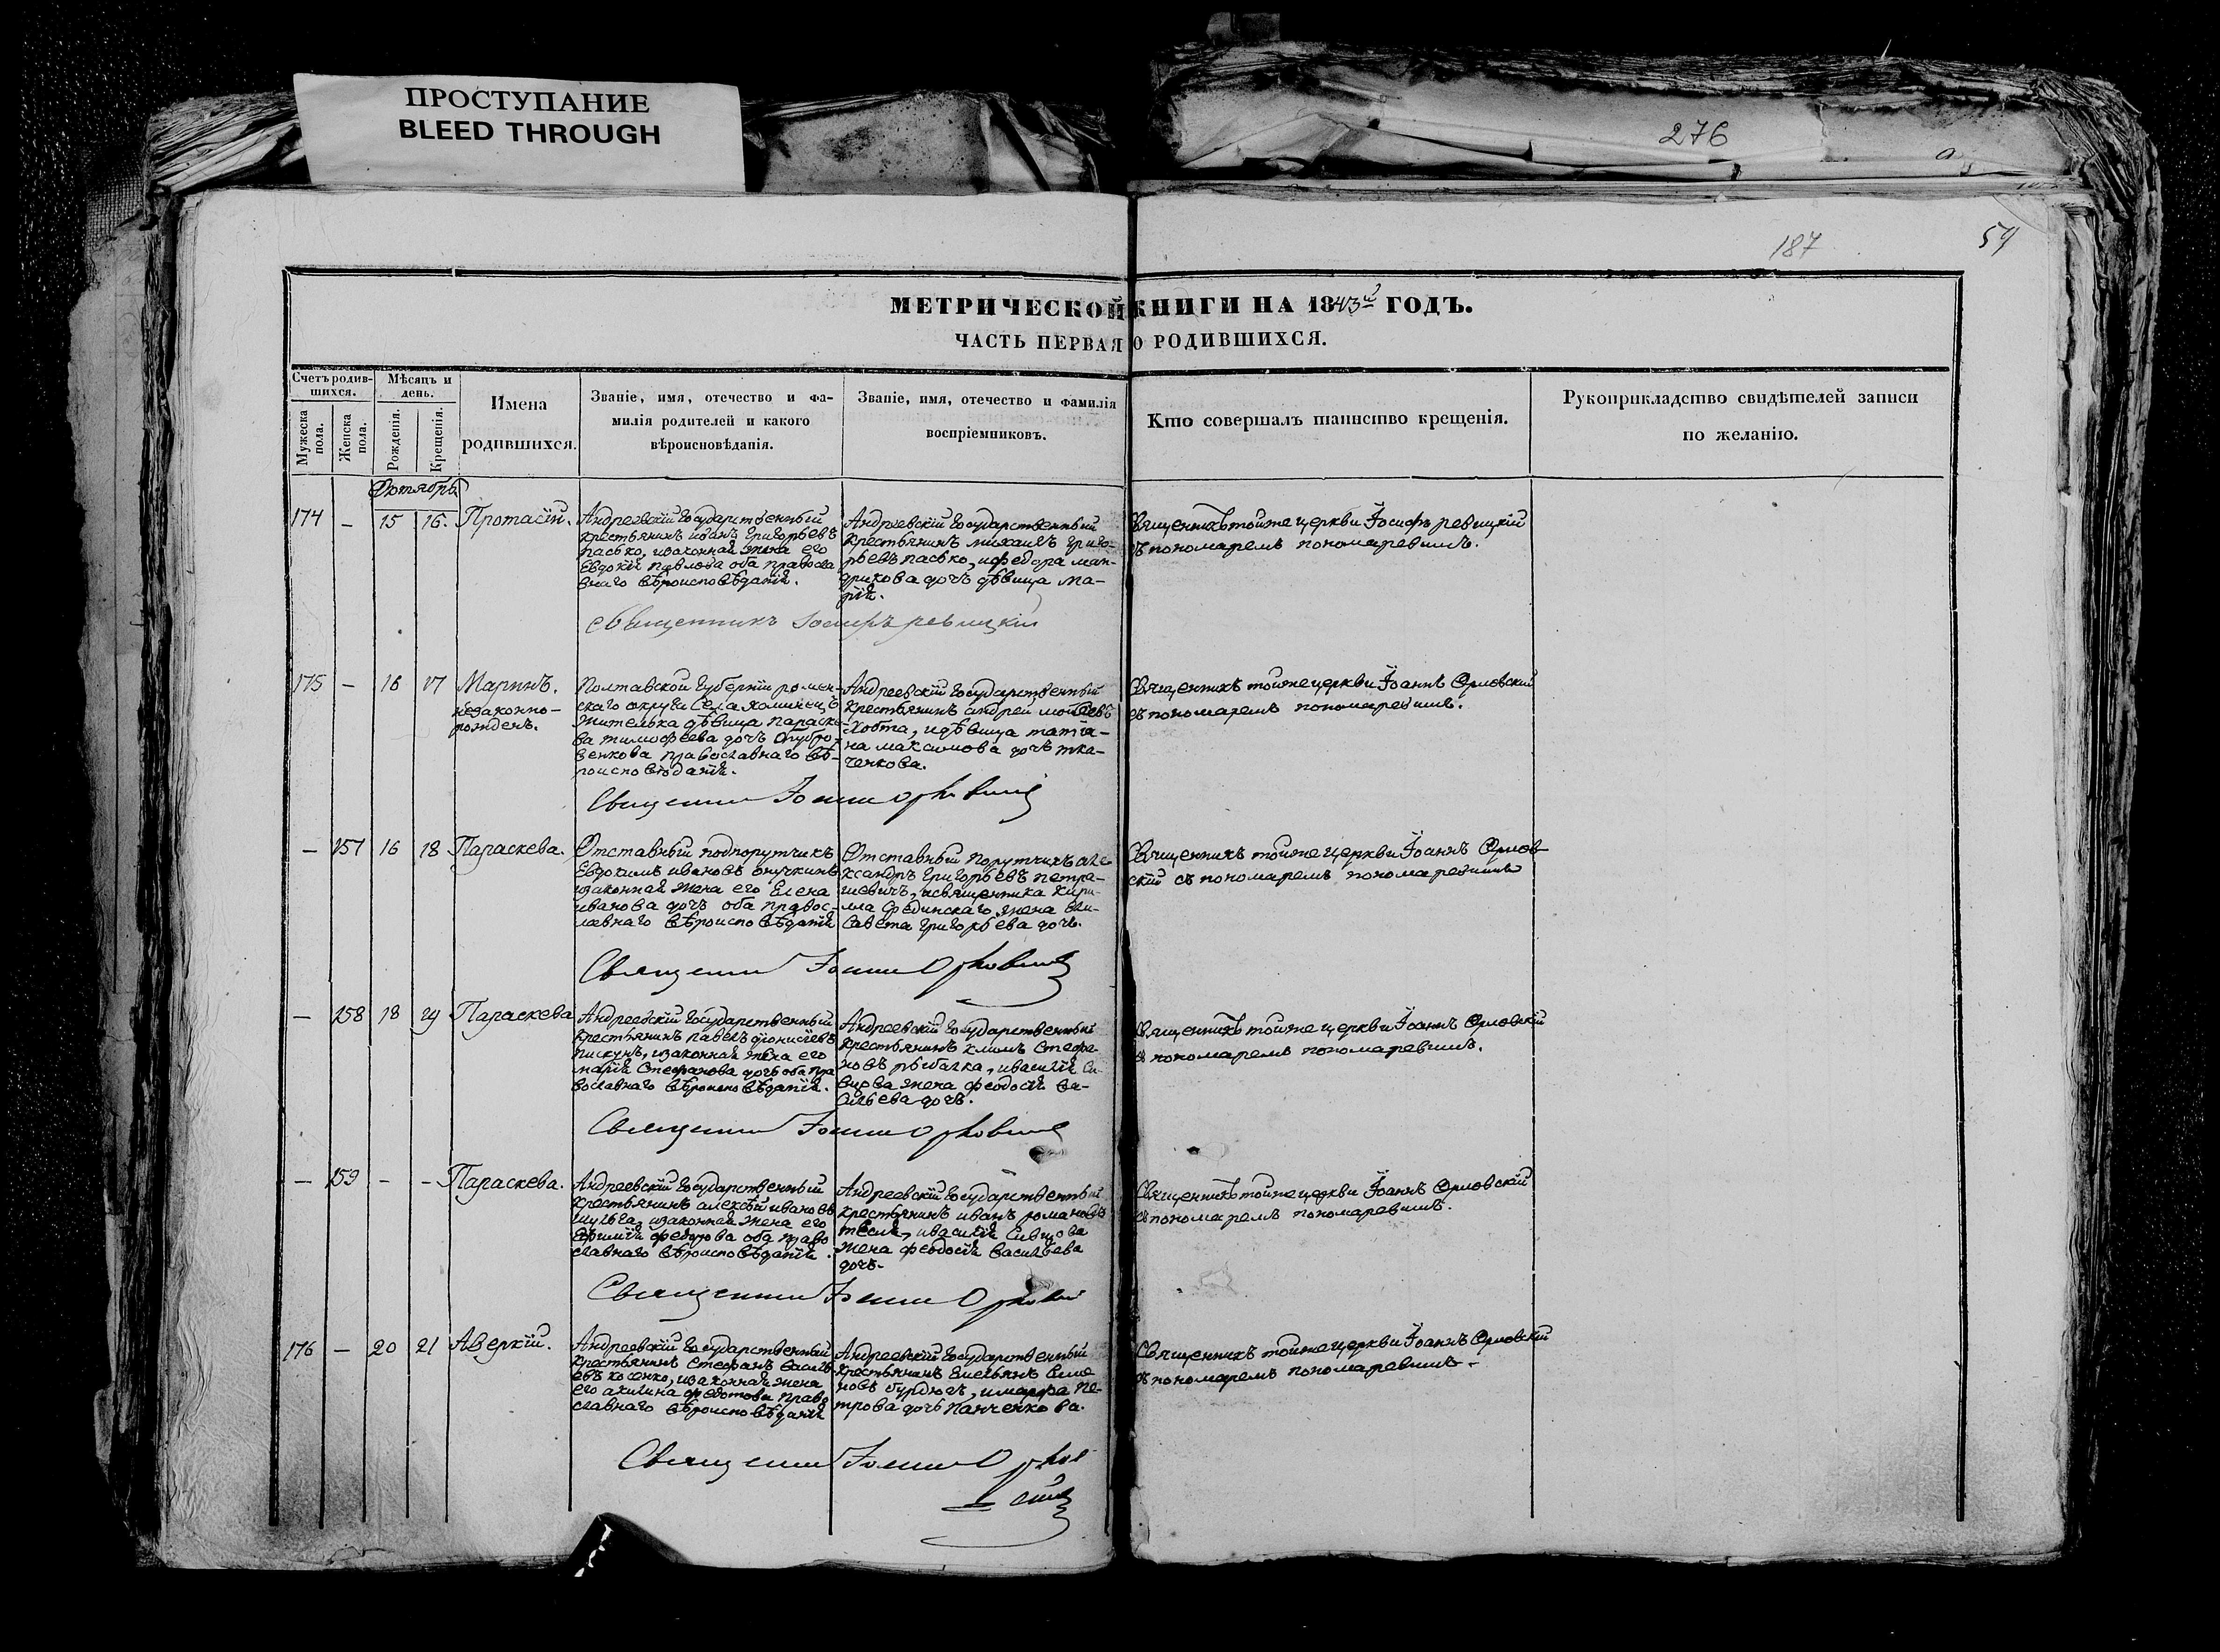 ПРОСТУПАНИЕ
BLEED THROUGH
276
187
59
МЕТРИЧЕСКОЙ КНИГИ НА 1843й ГОДЪ.
ЧАСТЬ ПЕРВАЯ О РОДИВШИХСЯ.
Счетъ родив-
шихся.
Мужеска
пола.
Женска
пола.
Мѣсяцъ и
день.
Рожденія.
Крещенія.
Имена
родившихся.
Званіе, имя, отечество и фа-
милія родителей и какого
вѣроисновѣданія.
Званіе, имя, отечество и фамилія
воспріемниковъ.
Кто совершалъ таинство крещенія.
Рукоприкладство свидѣтелей записи
по желанію.
Октябрь
174 – 15 16. Протасій.
Андреевскій Государственный
крестьянинъ иванъ Григорьевъ
пасько, изаконная жена его
Евдокія павлова оба правосла
внаго вѣроисповѣданія.
Андреевскій Государственный
крестьянинъ михаилъ григо-
рьевъ пасько, ифедора ман-
дрикова дочь дѣвица ма-
рія.
Священникъ тойже церкви Іосифъ ревицкій
съ пономаремъ пономаревимъ.
священникъ Іосифъ ревицкій
175 – 16 17 Маринъ.
незаконно-
рожденъ.
Полтавской Губерніи ромен-
скаго округи Села
жителька дѣвица параске-
ва тимофеева дочь
православнаго вѣ-
роисповѣданія.
Андреевскій Государственный
крестьянинъ андрей моѵсеевъ
Хобта, идѣвица татія-
на максимова дочь тка-
ченкова.
Священникъ тойже церкви Іоаннъ Орловскій
съ пономаремъ пономаревимъ.
Священникъ Іоаннъ Орловскій
– 157 16 18 Параскева.
Отставный подпорутчикъ
Евдокимъ ивановъ онучкинъ
изаконная жена его Елена
иванова дочь оба правос-
лавнаго вѣроисповѣданія
Отставный порутчикъ але
ксандръ Григорьевъ петра-
шевичъ, исвященника кири-
ла жена ели-
Савета григорьева дочь.
Священникъ тойже церкви Іоаннъ Орлов-
скій съ пономаремъ пономаревимъ
Священникъ Іоаннъ Орловскій
– 158 18 Параскева
Андреевскій Государственный
крестьянинъ павелъ діонисіевъ
пискунъ, изаконная жена его
марія Стефанова дочь оба пра
вославнаго вѣроисповѣданія.
Андреевскій Государственный
крестьянинъ климъ Стефа-
новъ рыбалка, ивасилія
жена феодосія ва-
сильева дочь.
Священникъ тойже церкви Іоаннъ Орловскій
съ пономаремъ пономаревимъ.
Священникъ Іоаннъ Орловскій
– 159 – – Параскева.
Андреевскій Государственный
крестьянинъ алексѣй ивановъ
шульга, изаконная жена его
Евфимія федорова оба право
славнаго вѣроисповѣданія.
Андреевскій Государственный
крестьянинъ иванъ романовъ
тесля, ивасилія Сивцова
жена феодосія васильева
дочь.
Священникъ тойже церкви Іоаннъ Орловскій
съ пономаремъ пономаревимъ.
Священникъ Іоаннъ Орловскій
176 – 20 21 Аверкій.
Андреевскій Государственный
крестьянинъ Стефанъ василь
евъ косенко, изаконная жена
его акилина федотова право
славнаго вѣроисповѣданія
Андреевскій Государственный
крестьянинъ Емельянъ Симе
новъ бурдюгъ, имарфа пе-
трова дочь панченкова.
Священникъ тойже церкви Іоаннъ Орловскій
съ пономаремъ пономаревимъ.
Священникъ Іоаннъ Орлов
скій